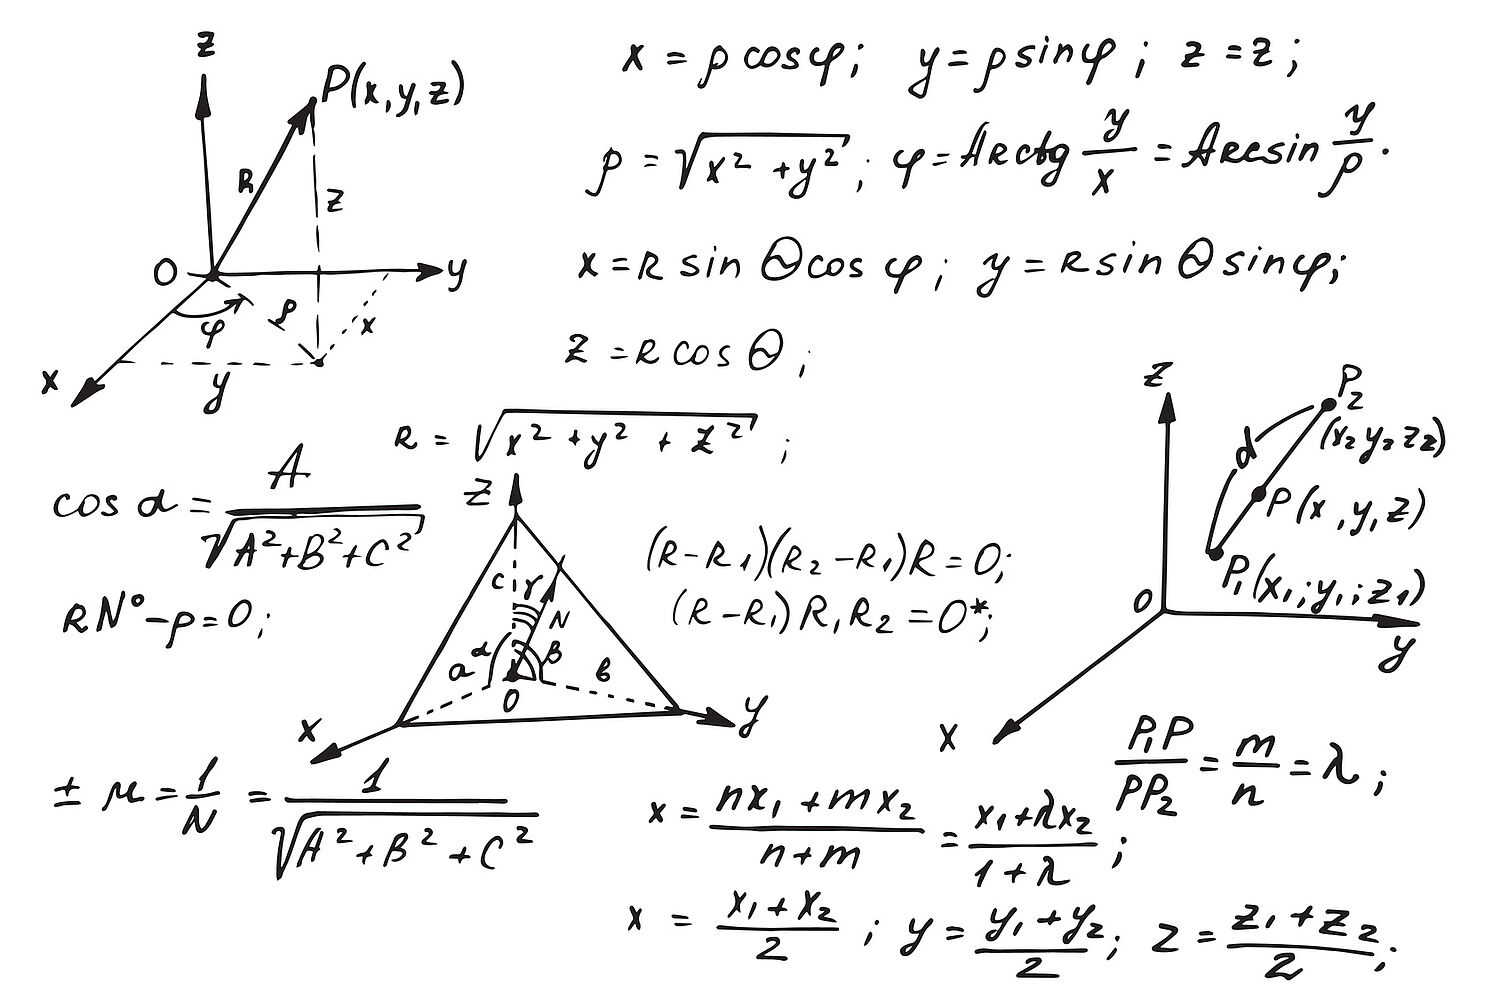 z
P(x,y,z)
R
z
O
y
φ
ρ
x
x
y
x = ρ cosφ; y = ρ sinφ; z = z;
ρ = √(x² + y²); φ = Arctg y/x = Arcsin y/ρ.
x = R sin Θ cos φ; y = R sin Θ sin φ;
z = R cos Θ;
R = √(x² + y² + z²);
cos α = A/√(A²+B²+C²)
RN° - p = 0;
z
c
γ
N
α
β
a
в
O
x
y
(R - R₁)(R₂ - R₁)R = 0;
(R - R₁) R₁ R₂ = 0*;
z
P₂
(x₂ y₂ z₂)
d
P(x, y, z)
P₁(x₁; y₁; z₁)
O
y
x
± μ = 1/N = 1/√(A² + B² + C²)
P₁P/PP₂ = m/n = λ;
x = (nx₁ + mx₂)/(n + m) = (x₁ + λx₂)/(1 + λ);
x = (x₁ + x₂)/2; y = (y₁ + y₂)/2; z = (z₁ + z₂)/2;